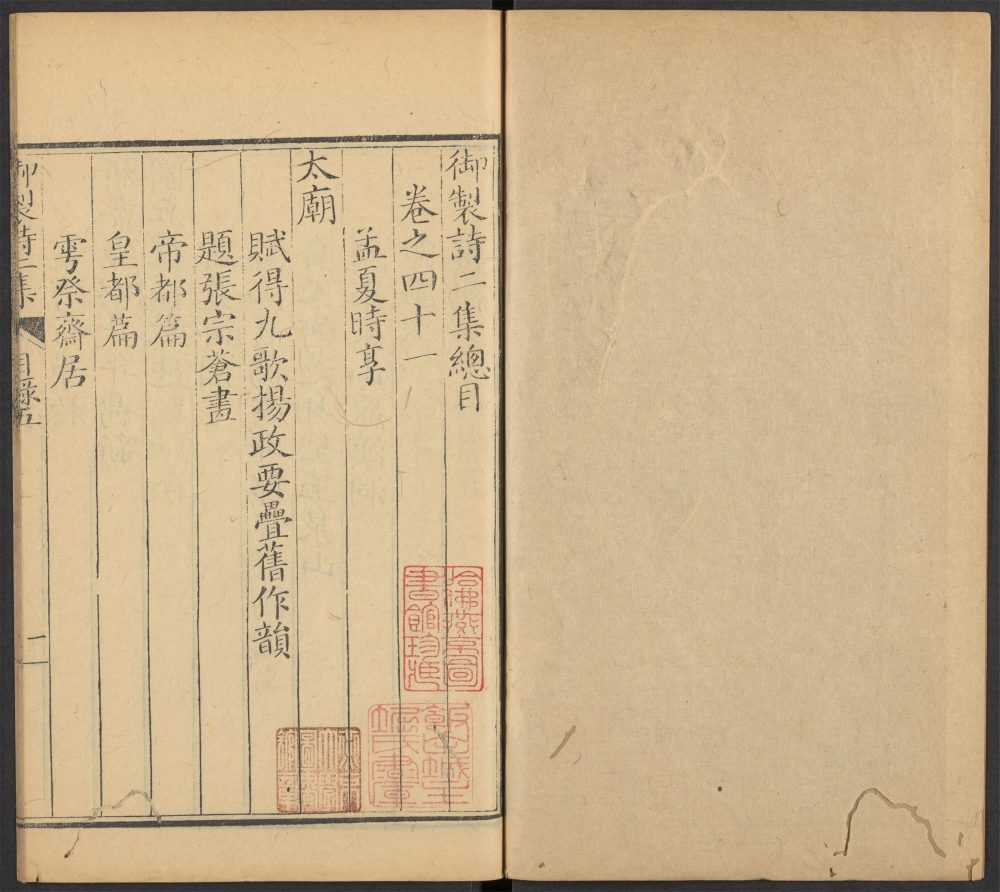 御製詩二集總目
卷之四十一
孟夏時享
太廟
賦得九歌揚政要疊舊作韻
題張宗蒼畫
帝都篇
皇都篇
雩祭齋居
御製詩二集
目錄五
一
哈佛燕京圖
書館珍藏